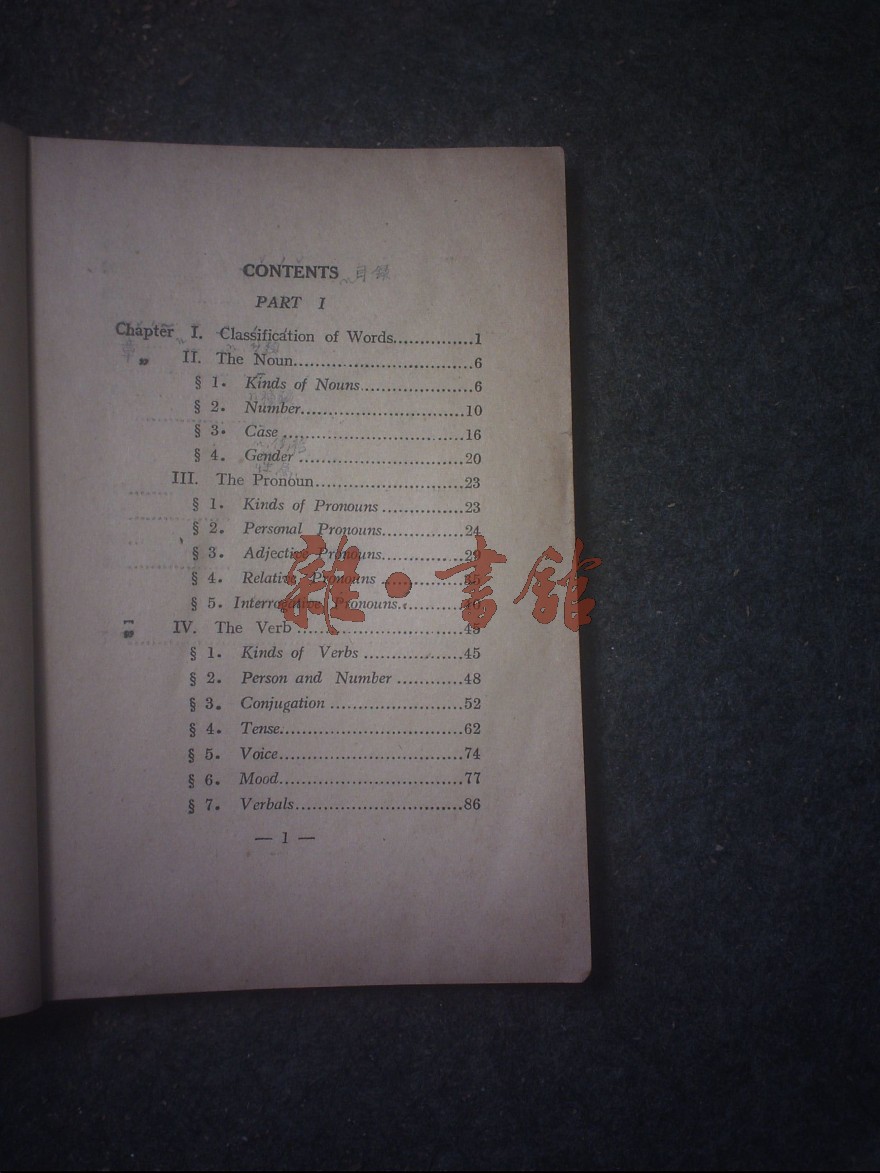 CONTENTS 目錄
PART I
Chapter I. Classification of Words...............1
章
„ II. The Noun...................................6
§ 1. Kinds of Nouns.....................6
§ 2. Number...............................10
§ 3. Case...................................16
§ 4. Gender................................20
III. The Pronoun.............................23
§ 1. Kinds of Pronouns...............23
§ 2. Personal Pronouns................24
§ 3. Adjective Pronouns................29
§ 4. Relative Pronouns...............35
§ 5. Interrogative Pronouns...........40
雜·書館
„ IV. The Verb................................45
§ 1. Kinds of Verbs...................45
§ 2. Person and Number............48
§ 3. Conjugation........................52
§ 4. Tense..................................62
§ 5. Voice..................................74
§ 6. Mood..................................77
§ 7. Verbals...............................86
— 1 —